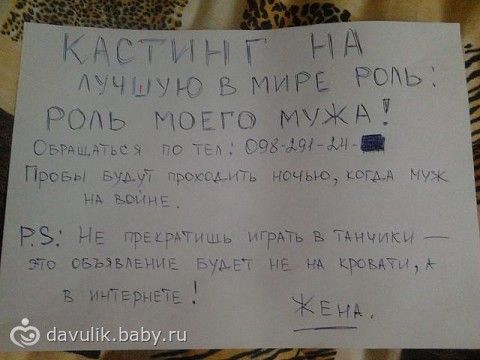 КАСТИНГ НА
ЛУЧШУЮ В МИРЕ РОЛЬ:
РОЛЬ МОЕГО МУЖА!
ОБРАЩАТЬСЯ ПО ТЕЛ: 098-291-24-
ПРОБЫ БУДУТ ПРОХОДИТЬ НОЧЬЮ, КОГДА МУЖ
НА ВОЙНЕ.
P.S: НЕ ПРЕКРАТИШЬ ИГРАТЬ В ТАНЧИКИ —
ЭТО ОБЪЯВЛЕНИЕ БУДЕТ НЕ НА КРОВАТИ, А
В ИНТЕРНЕТЕ!
ЖЕНА.
davulik.baby.ru